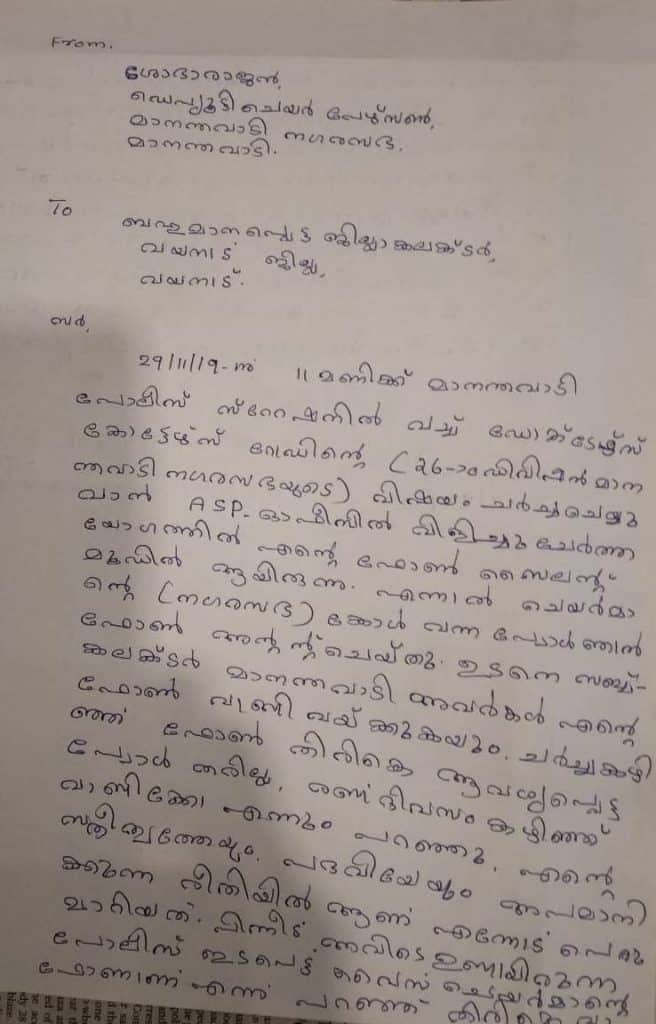 From.
ശോദാരാജൻ,
ഡെപ്യൂട്ടി ചെയർ പേഴ്സൺ,
മാനന്തവാടി നഗരസഭ.
മാനന്തവാടി.
To
ബഹുമാനപ്പെട്ട ജില്ലാ കലക്ടർ,
വയനാട് ജില്ല,
വയനാട്.
സർ,
29/11/19-ന് 11 മണിക്ക് മാനന്തവാടി
പോലീസ് സ്റ്റേഷനിൽ വച്ച് ഡോക്ടേഴ്സ്
കോട്ടേഴ്സ് റോഡിന്റെ (26-ാം ഡിവിഷൻ മാന
ന്തവാടി നഗരസഭയുടെ) വിഷയം ചർച്ചചെയ്യു
വാൻ ASP. ഓഫീസിൽ വിളിച്ചു ചേർത്ത
യോഗത്തിൽ എന്റെ ഫോൺ സൈലന്റ്
മൂഡിൽ ആയിരുന്നു. എന്നാൽ ചെയർമാ
ന്റെ (നഗരസഭ) കോൾ വന്നപ്പോൾ ഞാൻ
ഫോൺ അറ്റന്റ് ചെയ്തു. ഉടനെ സബ്ബ്-
കലക്ടർ മാനന്തവാടി അവർകൾ എന്റെ
ഫോൺ വാങ്ങി വയ്ക്കുകയും. ചർച്ച കഴി
ഞ്ഞ് ഫോൺ തിരികെ ആവശ്യപ്പെട്ട
പ്പോൾ തരില്ല, രണ്ട് ദിവസം കഴിഞ്ഞ്
വാങ്ങിക്കോ എന്നും പറഞ്ഞു. എന്റെ
സ്ത്രീത്വത്തേയും. പദവിയേയും അപമാനി
ക്കുന്ന രീതിയിൽ ആണ് എന്നോട് പെരു
മാറിയത്. പിന്നീട് അവിടെ ഉണ്ടായിരുന്ന
പോലീസ് ഇടപെട്ട് വൈസ് ചെയർമാന്റെ
ഫോണാണ് എന്ന് പറഞ്ഞ്